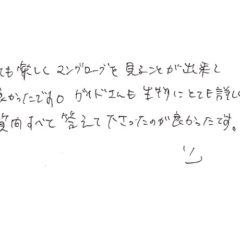 ても楽しくマングローブを見ることが出来て
良かったです。ガイドさんも生物にとても詳し
質問すべて答えて下さったのが良かったです。